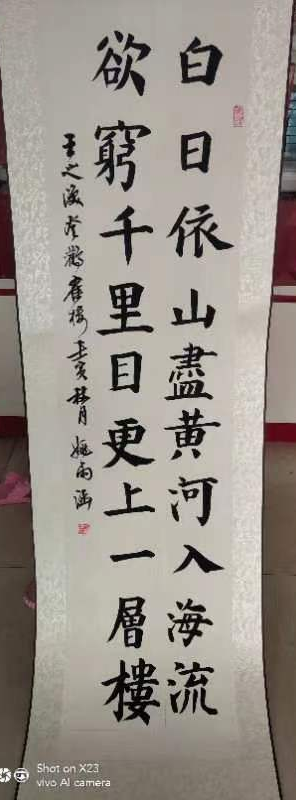 白日依山盡黄河入海流
欲窮千里目更上一層樓
王之渙登鸛雀樓壬寅桂月姚雨涵
Shot on X23
vivo AI camera